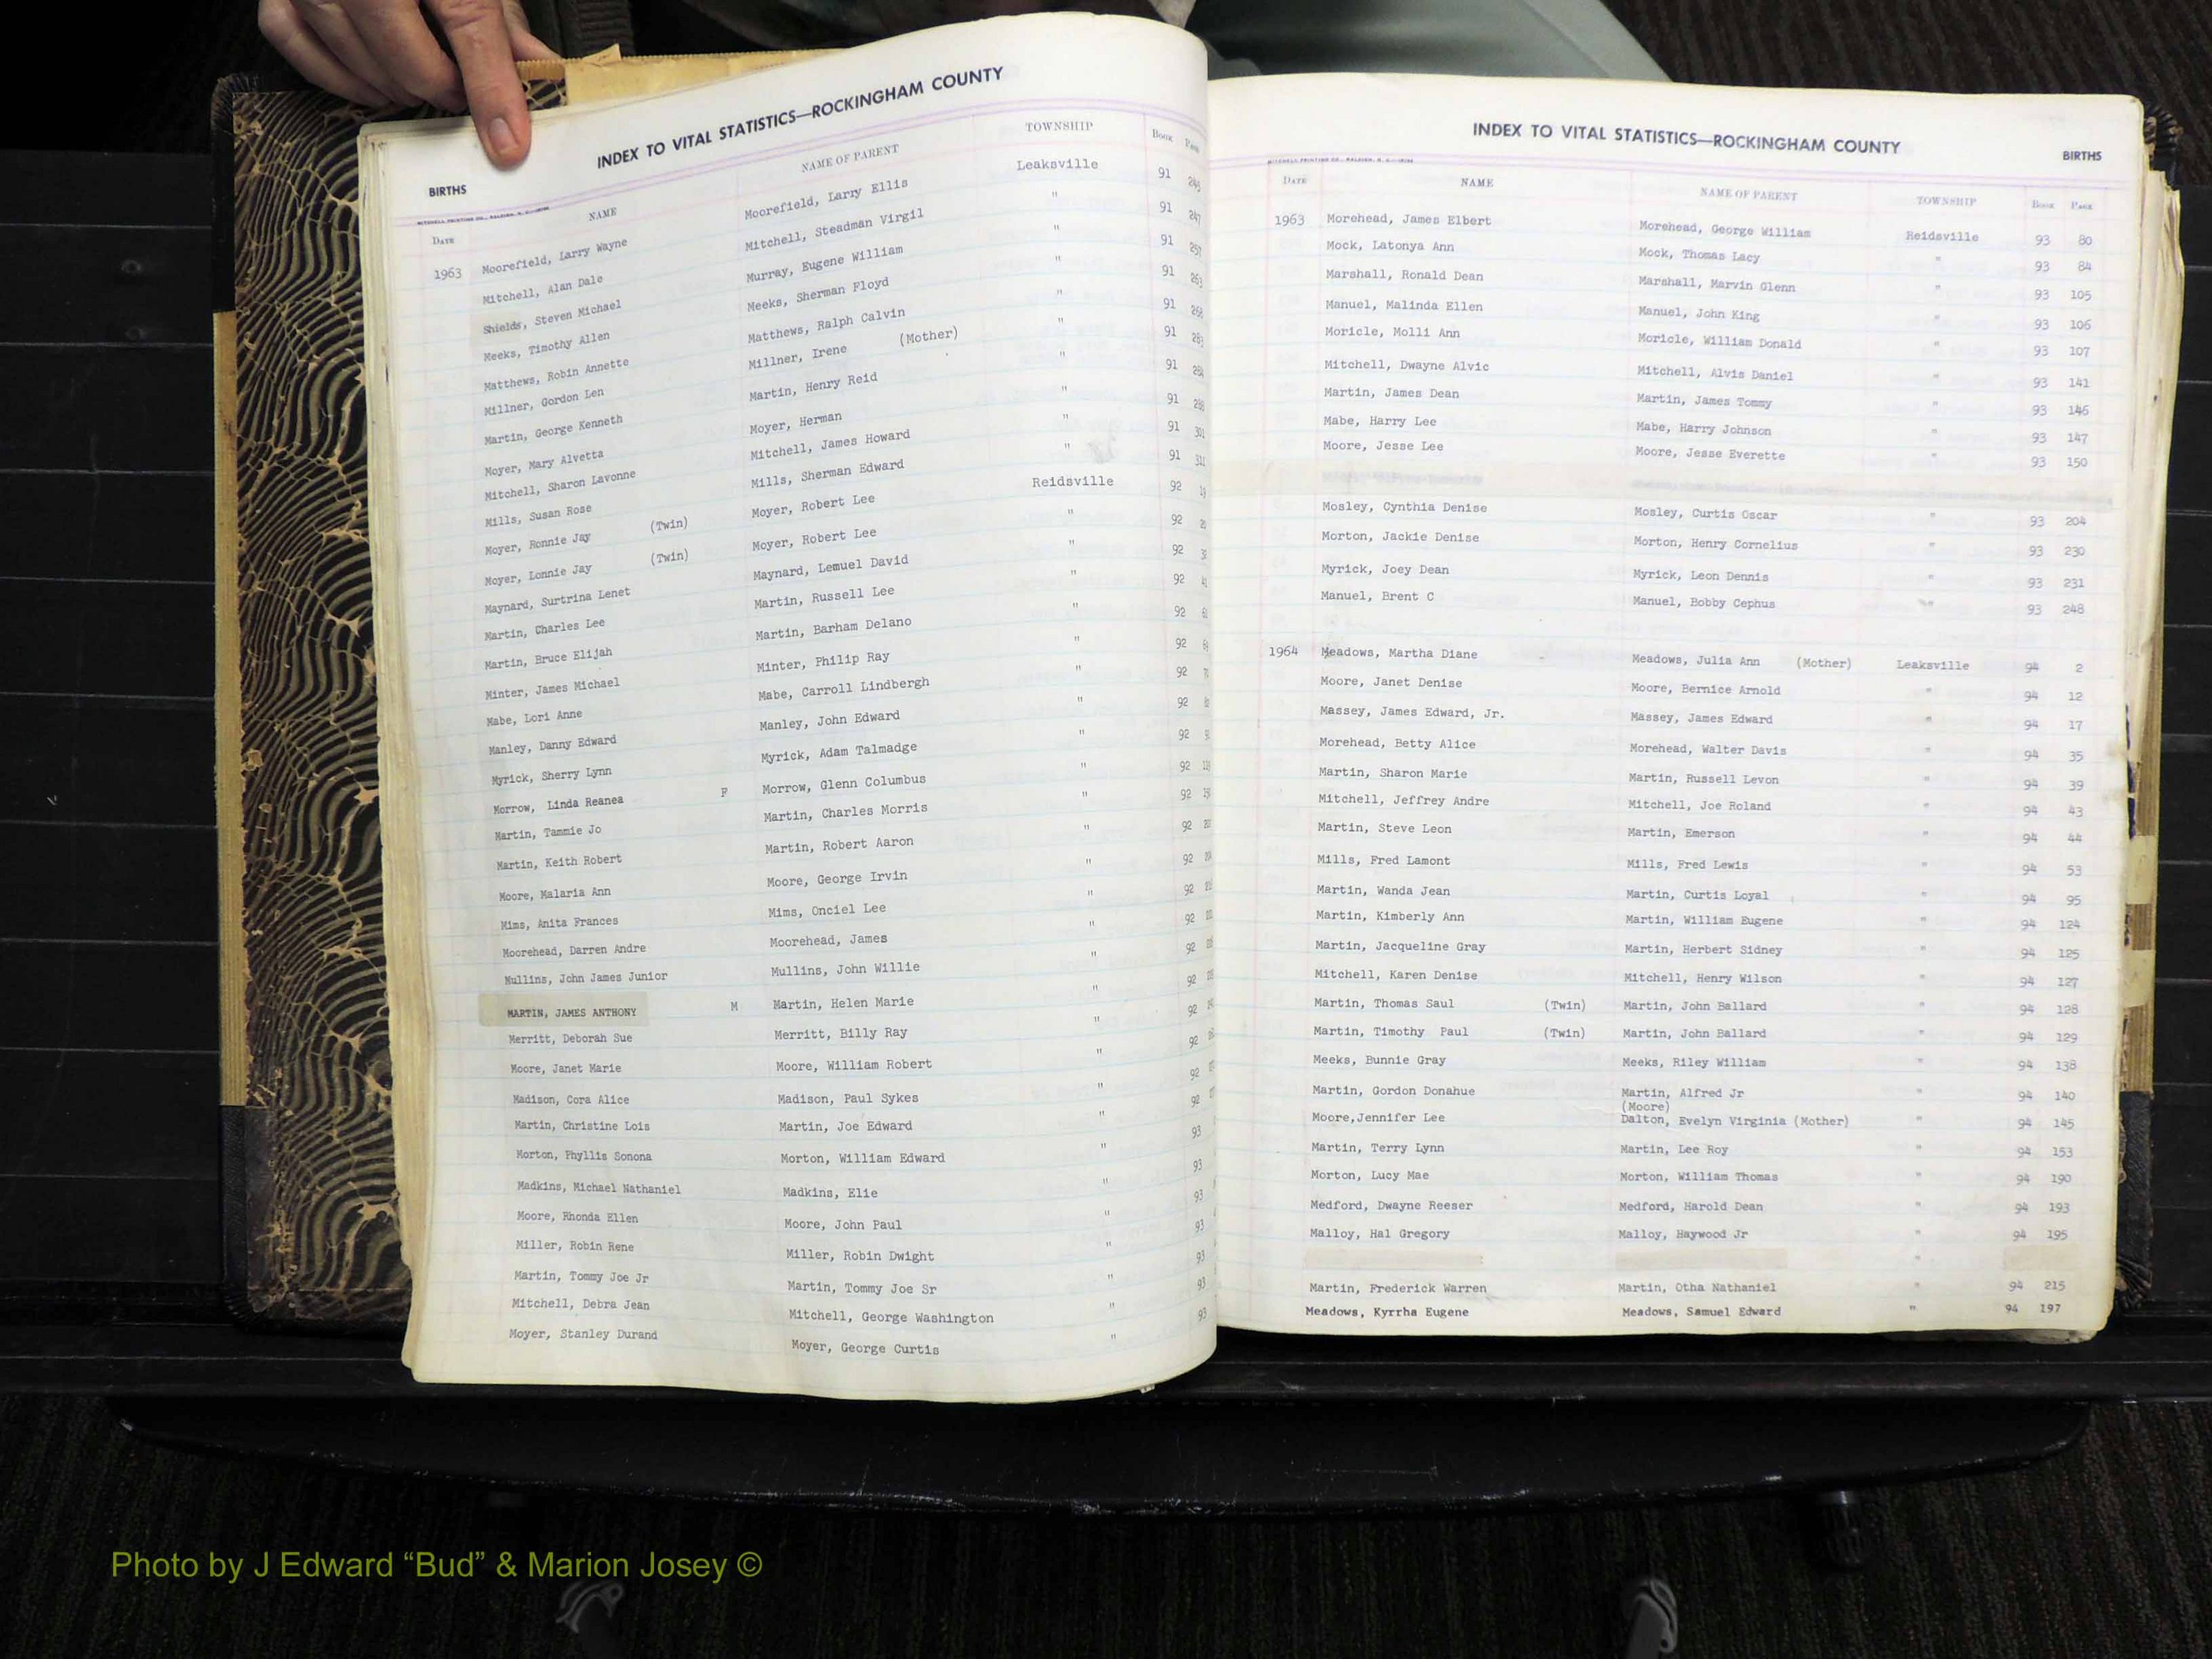 INDEX TO VITAL STATISTICS—ROCKINGHAM COUNTY
BIRTHS
MITCHELL PRINTING CO., RALEIGH, N. C.
DATE NAME NAME OF PARENT TOWNSHIP BOOK PAGE
1963 Moorefield, Larry Wayne Moorefield, Larry Ellis Leaksville 91
Mitchell, Alan Dale Mitchell, Steadman Virgil " 91 247
Shields, Steven Michael Murray, Eugene William " 91 257
Meeks, Timothy Allen Meeks, Sherman Floyd " 91
Matthews, Robin Annette Matthews, Ralph Calvin " 91
Millner, Gordon Len Millner, Irene (Mother) " 91
Martin, George Kenneth Martin, Henry Reid " 91
Moyer, Mary Alvetta Moyer, Herman " 91
Mitchell, Sharon Lavonne Mitchell, James Howard " 91
Mills, Susan Rose Mills, Sherman Edward " 91
Moyer, Ronnie Jay (Twin) Moyer, Robert Lee Reidsville 92
Moyer, Lonnie Jay (Twin) Moyer, Robert Lee " 92
Maynard, Surtrina Lenet Maynard, Lemuel David " 92
Martin, Charles Lee Martin, Russell Lee " 92
Martin, Bruce Elijah Martin, Barham Delano " 92
Minter, James Michael Minter, Philip Ray " 92
Mabe, Lori Anne Mabe, Carroll Lindbergh " 92
Manley, Danny Edward Manley, John Edward " 92
Myrick, Sherry Lynn Myrick, Adam Talmadge " 92
Morrow, Linda Reanea F Morrow, Glenn Columbus " 92
Martin, Tammie Jo Martin, Charles Morris " 92
Martin, Keith Robert Martin, Robert Aaron " 92
Moore, Malaria Ann Moore, George Irvin " 92
Mims, Anita Frances Mims, Onciel Lee " 92
Moorehead, Darren Andre Moorehead, James " 92
Mullins, John James Junior Mullins, John Willie " 92
MARTIN, JAMES ANTHONY M Martin, Helen Marie " 92
Merritt, Deborah Sue Merritt, Billy Ray " 92
Moore, Janet Marie Moore, William Robert " 92
Madison, Cora Alice Madison, Paul Sykes " 92
Martin, Christine Lois Martin, Joe Edward " 92
Morton, Phyllis Sonona Morton, William Edward " 93
Madkins, Michael Nathaniel Madkins, Elie " 93
Moore, Rhonda Ellen Moore, John Paul " 93
Miller, Robin Rene Miller, Robin Dwight " 93
Martin, Tommy Joe Jr Martin, Tommy Joe Sr " 93
Mitchell, Debra Jean Mitchell, George Washington " 93
Moyer, Stanley Durand Moyer, George Curtis " 93
INDEX TO VITAL STATISTICS—ROCKINGHAM COUNTY
BIRTHS
MITCHELL PRINTING CO., RALEIGH, N. C.
DATE NAME NAME OF PARENT TOWNSHIP BOOK PAGE
1963 Morehead, James Elbert Morehead, George William Reidsville 93 80
Mock, Latonya Ann Mock, Thomas Lacy " 93 84
Marshall, Ronald Dean Marshall, Marvin Glenn " 93 105
Manuel, Malinda Ellen Manuel, John King " 93 106
Moricle, Molli Ann Moricle, William Donald " 93 107
Mitchell, Dwayne Alvic Mitchell, Alvis Daniel " 93 141
Martin, James Dean Martin, James Tommy " 93 146
Mabe, Harry Lee Mabe, Harry Johnson " 93 147
Moore, Jesse Lee Moore, Jesse Everette " 93 150
Mosley, Cynthia Denise Mosley, Curtis Oscar " 93 204
Morton, Jackie Denise Morton, Henry Cornelius " 93 230
Myrick, Joey Dean Myrick, Leon Dennis " 93 231
Manuel, Brent C Manuel, Bobby Cephus " 93 248
1964 Meadows, Martha Diane Meadows, Julia Ann (Mother) Leaksville 94 2
Moore, Janet Denise Moore, Bernice Arnold " 94 12
Massey, James Edward, Jr. Massey, James Edward " 94 17
Morehead, Betty Alice Morehead, Walter Davis " 94 35
Martin, Sharon Marie Martin, Russell Levon " 94 39
Mitchell, Jeffrey Andre Mitchell, Joe Roland " 94 43
Martin, Steve Leon Martin, Emerson " 94 44
Mills, Fred Lamont Mills, Fred Lewis " 94 53
Martin, Wanda Jean Martin, Curtis Loyal " 94 95
Martin, Kimberly Ann Martin, William Eugene " 94 124
Martin, Jacqueline Gray Martin, Herbert Sidney " 94 125
Mitchell, Karen Denise Mitchell, Henry Wilson " 94 127
Martin, Thomas Saul (Twin) Martin, John Ballard " 94 128
Martin, Timothy Paul (Twin) Martin, John Ballard " 94 129
Meeks, Bunnie Gray Meeks, Riley William " 94 138
Martin, Gordon Donahue Martin, Alfred Jr " 94 140
(Moore)
Moore,Jennifer Lee Dalton, Evelyn Virginia (Mother) " 94 145
Martin, Terry Lynn Martin, Lee Roy " 94 153
Morton, Lucy Mae Morton, William Thomas " 94 190
Medford, Dwayne Reeser Medford, Harold Dean " 94 193
Malloy, Hal Gregory Malloy, Haywood Jr " 94 195
"
Martin, Frederick Warren Martin, Otha Nathaniel " 94 215
Meadows, Kyrrha Eugene Meadows, Samuel Edward " 94 197
Photo by J Edward “Bud” & Marion Josey ©